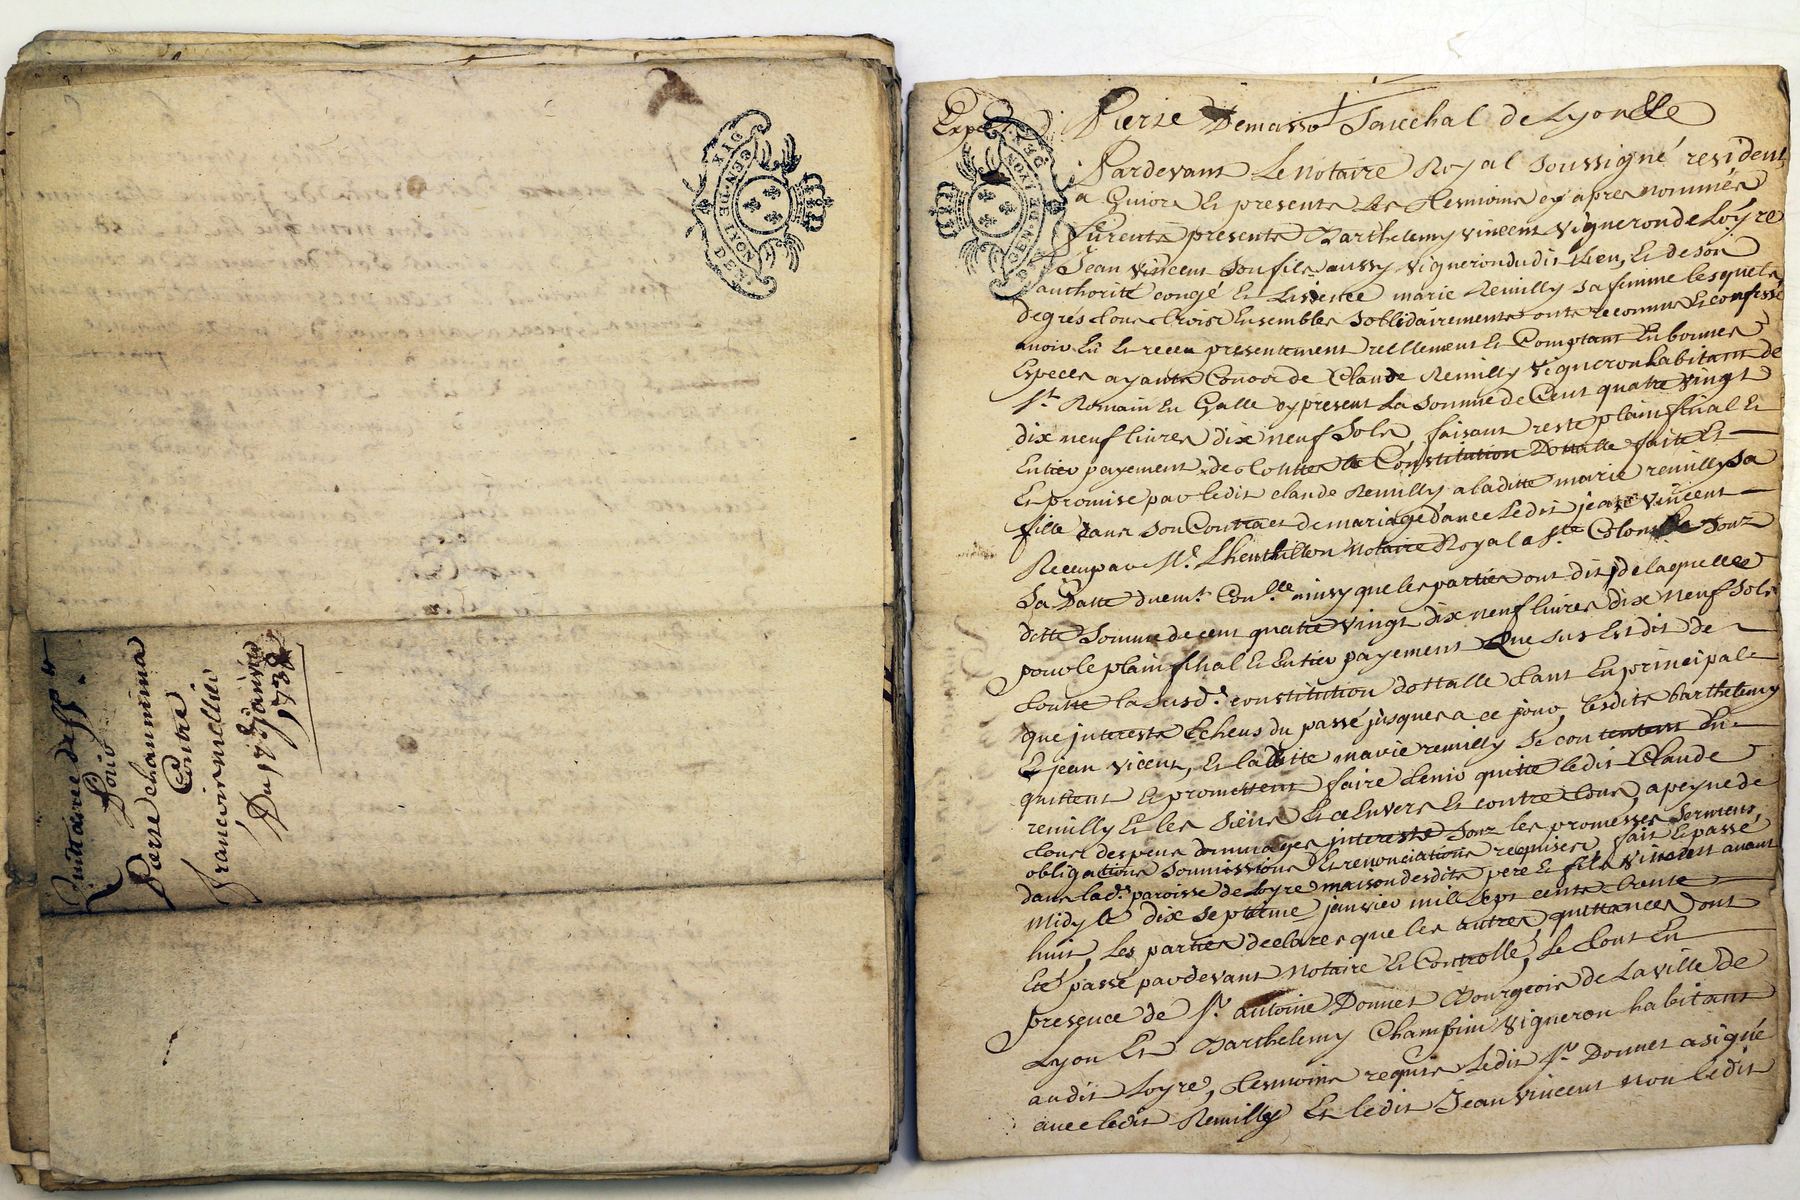 GEN. DE LYON
DIX DEN.
Pour
Pierre chanmina
Contre
francois mellier
Du 17e Janvier
1738
Expe
GEN. DE LYON
DIX DEN.
Pierre Demasso Senechal de Lyon
Pardevant Le Notaire Royal Soussigné resident
a Givors Et presents Les Tesmoins cy apres nommés
furents presents Barthelemy vincent vigneron de Loÿre
Jean vincent Son fils aussy vigneron dudit Lieu, Et de Son
authorité congé Et Lisiensce marie Remilly Sa femme lesquels
de gres tous trois Ensembles Sollidairements onts reconnus Et confessé
avoir Eü Et receu pressentement reellement Et Comptant En bonnes
Especes ayants Cours de Claude Remilly vigneron habitant de
St. Romain En Galle cy present La Somme de Cent quatre vingt
dix neuf livres dix neuf Sols, faisant reste plain final Et
Entier payement de toutte la Constitution Dottalle faite Et
Et promise par ledit claude Remilly a laditte marie remilly Sa
fille dans Son Contract de mariage d'avec Ledit jean vincent
Receu par Me. Notaire Royal a Ste Colombe Souz
Sa Datte duemt. Conlle. ainsy que les parties ont dit, de laquelle
ditte Somme de cent quatre vingt dix neuf livres dix neuf Sols
pour le plain final Et Entier payement Que Sus Est dit de
toutte la Susde. constitution dottalle tant En principal
que interests Echeus du passé jusques a ce jour, lesdits barthelemy
Et jean vicent, Et laditte marie remilly Se contentent En
quittent Et promettent faire tenir quitte ledit Claude
remilly Et les Siens Et ce Envers Et contre tous, a peyne de
tous despens dommages interests Souz les promesses Serment
obligations Soumissions Et renonciations requises, fait Et passé
dans lade. paroisse de Loyre maison desdits pere Et fils vincent avant
Midy le dix Septieme janvier mil Sept cents trente
huit, Les parties declares que les autres quittances ont
Eté passé pardevant Notaire Et Controllé, Le tout En
presence de Sr. antoine Donnet Bourgeois de La ville de
Lyon Et Barthelemy Champin vigneron habitant
audit Loyre, tesmoins requis Ledit Sr. Donnet a signé
avec ledit Remilly Et ledit Jean vincent non ledit